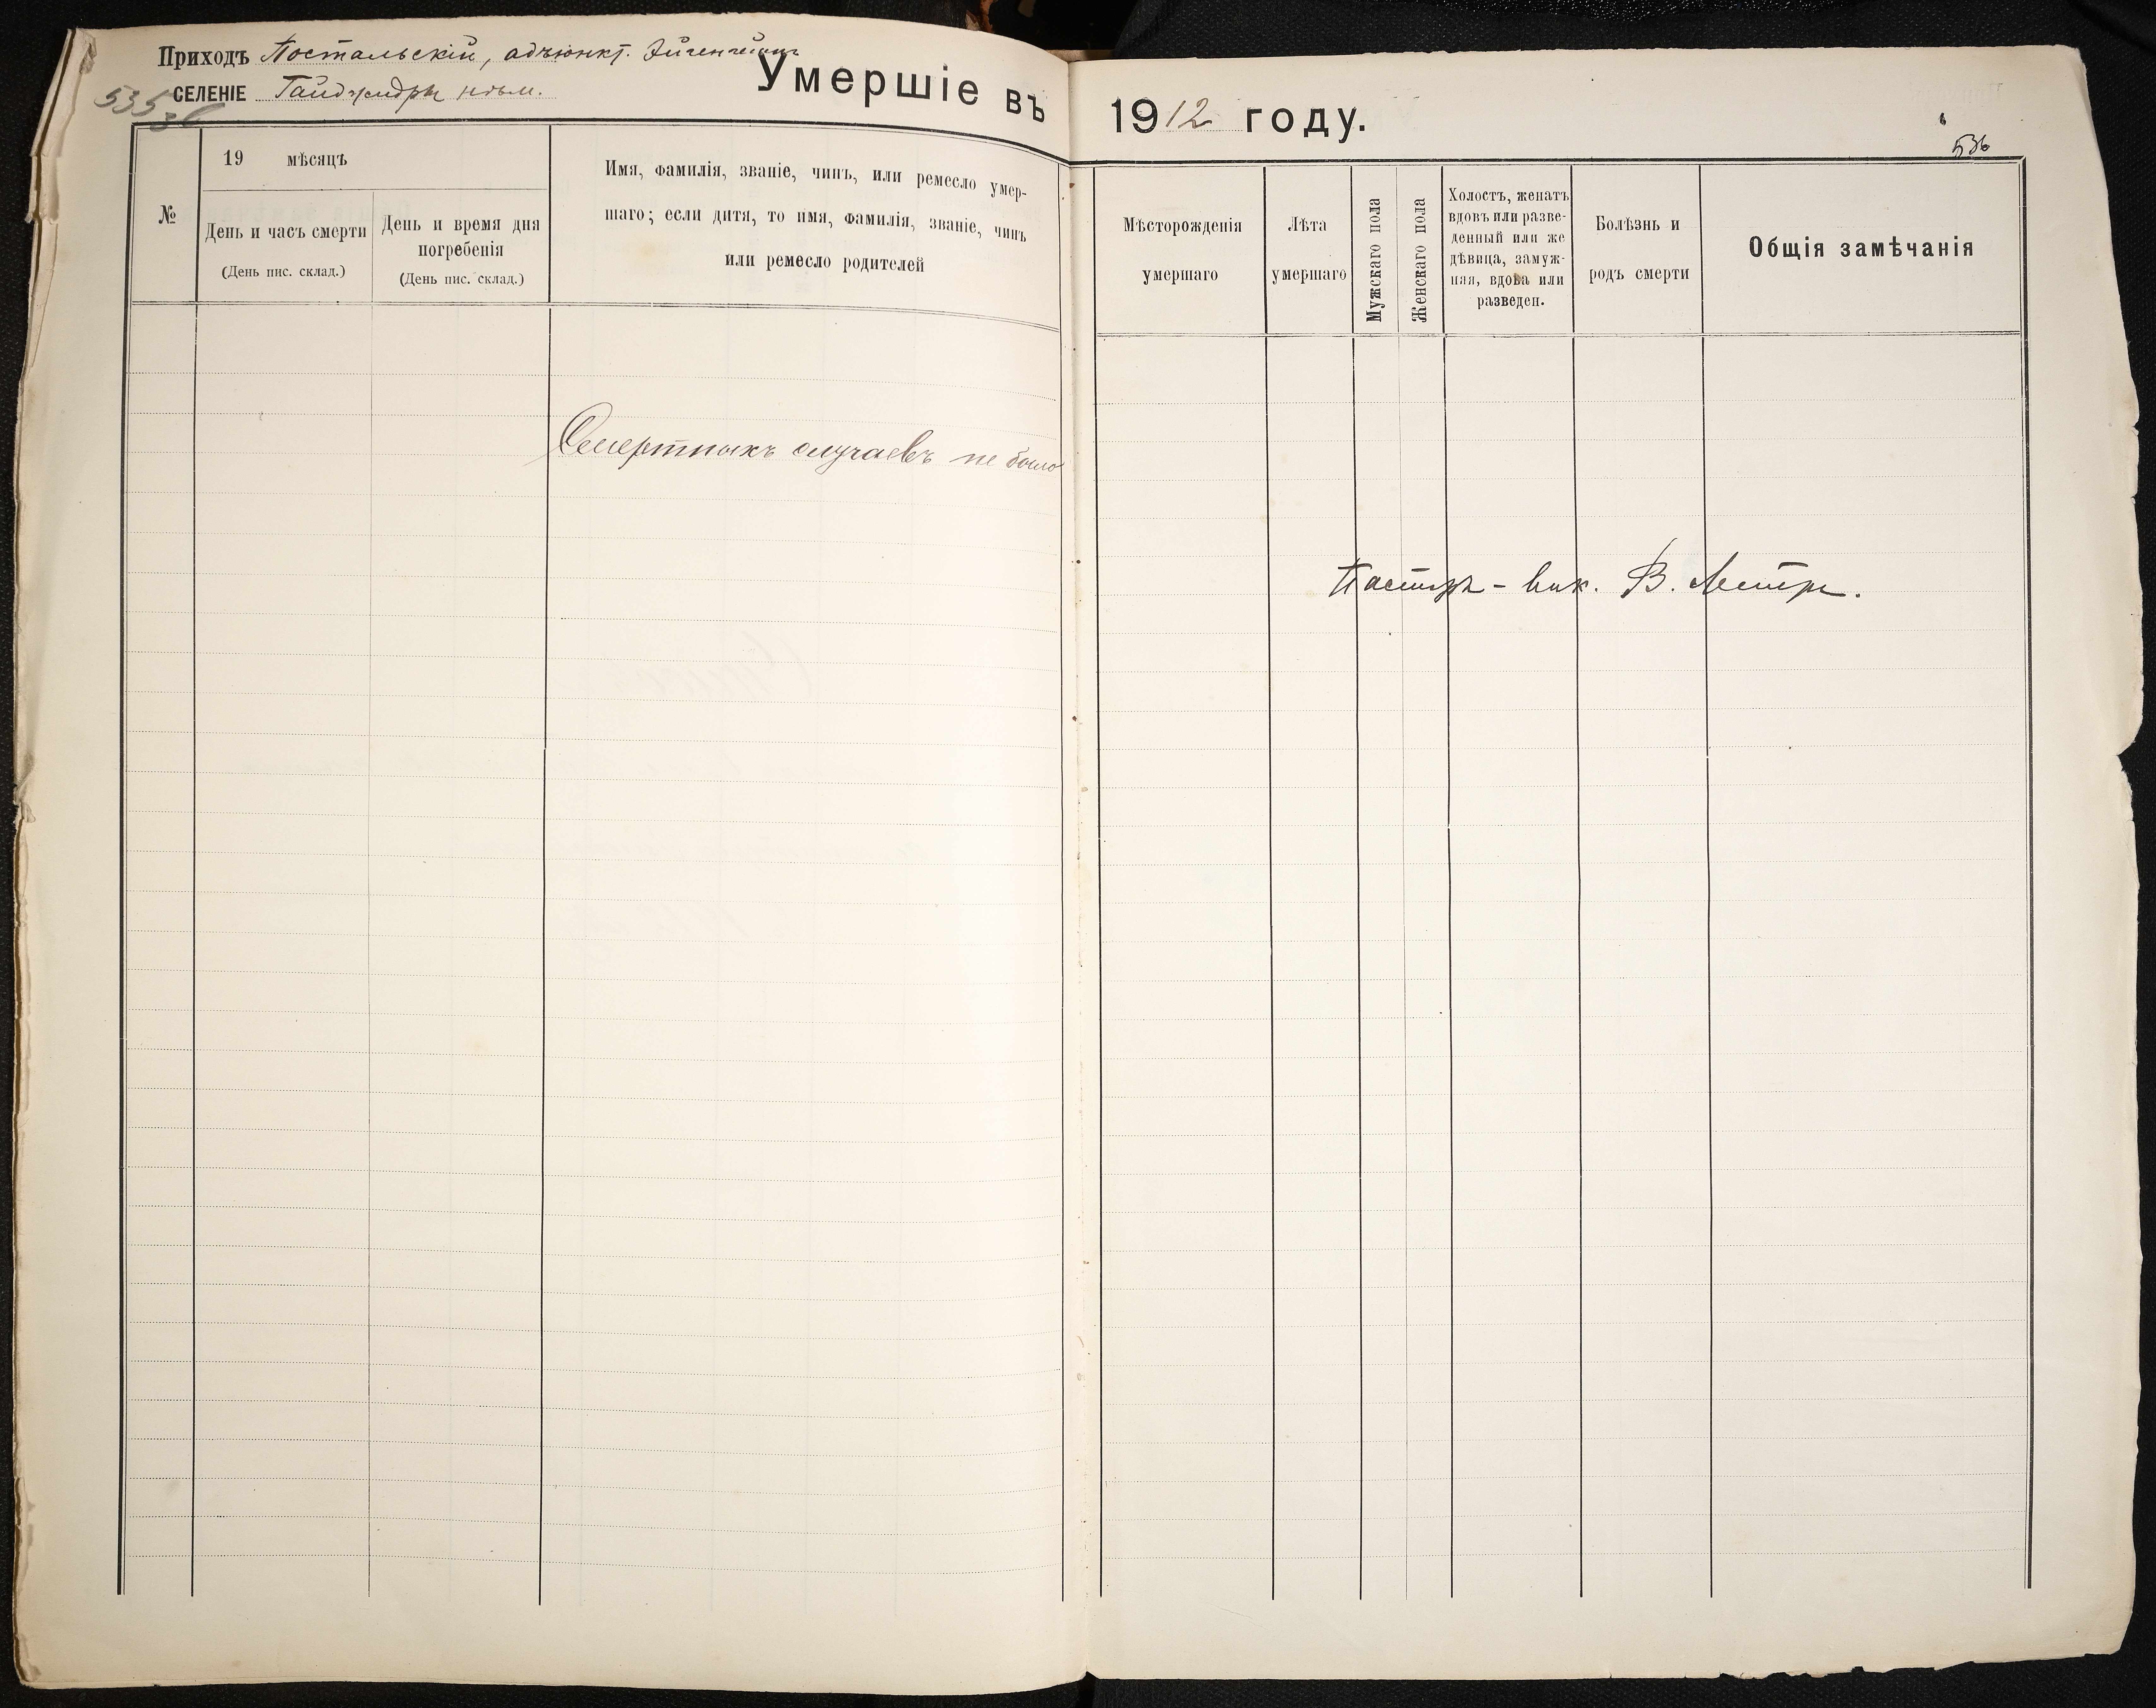 Приходъ Постальскій, адъюнкт. Эйгенгеймъ
СЕЛЕНІЕ Гайджидры нѣм.
Умершіе въ 1912 году.
535
536
№
19 мѣсяцъ
День и часъ смерти
(День пис. склад.)
День и время дня
погребенія
(День пис. склад.)
Имя, фамилія, званіе, чинъ, или ремесло умер-
шаго; если дитя, то имя, фамилія, званіе, чинъ
или ремесло родителей
Мѣсторожденія
умершаго
Лѣта
умершаго
Мужскаго пола
Женскаго пола
Холостъ, женатъ
вдовъ или разве-
денный или же
дѣвица, замуж-
няя, вдова или
разведен.
Болѣзнь и
родъ смерти
Общія замѣчанія
Смертныхъ случаевъ не было
Пастыръ - вик. В.